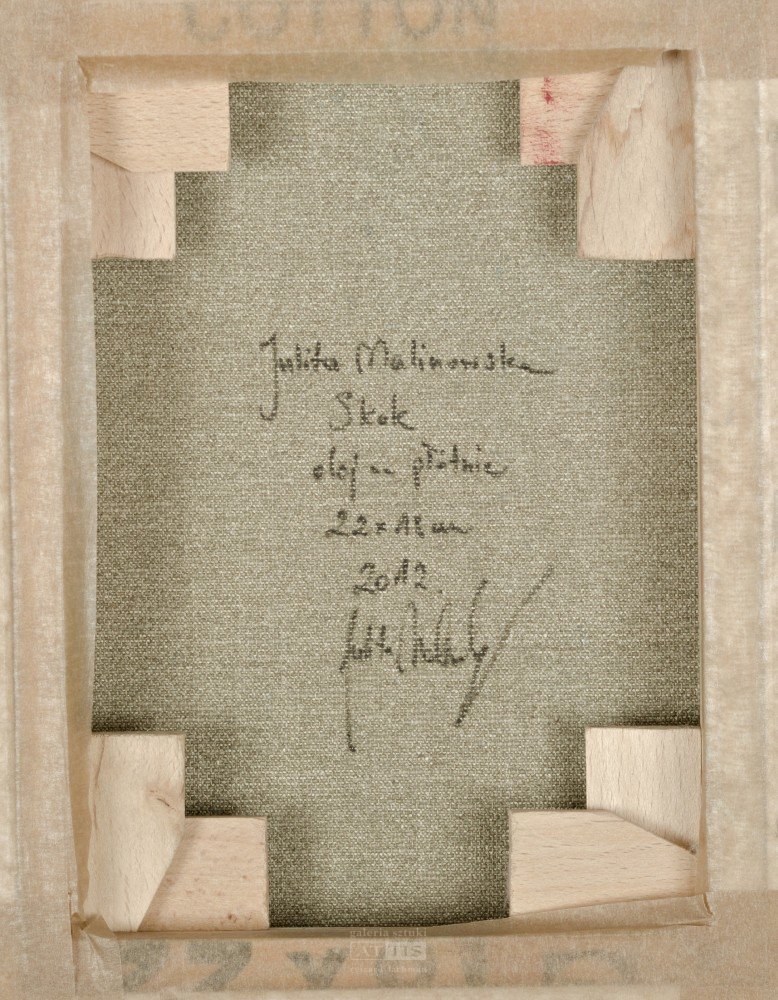 COTTON
Julita Malinowska
Skok
olej na płótnie
22 x 18 cm
2012.
galeria sztuki
ATTIS